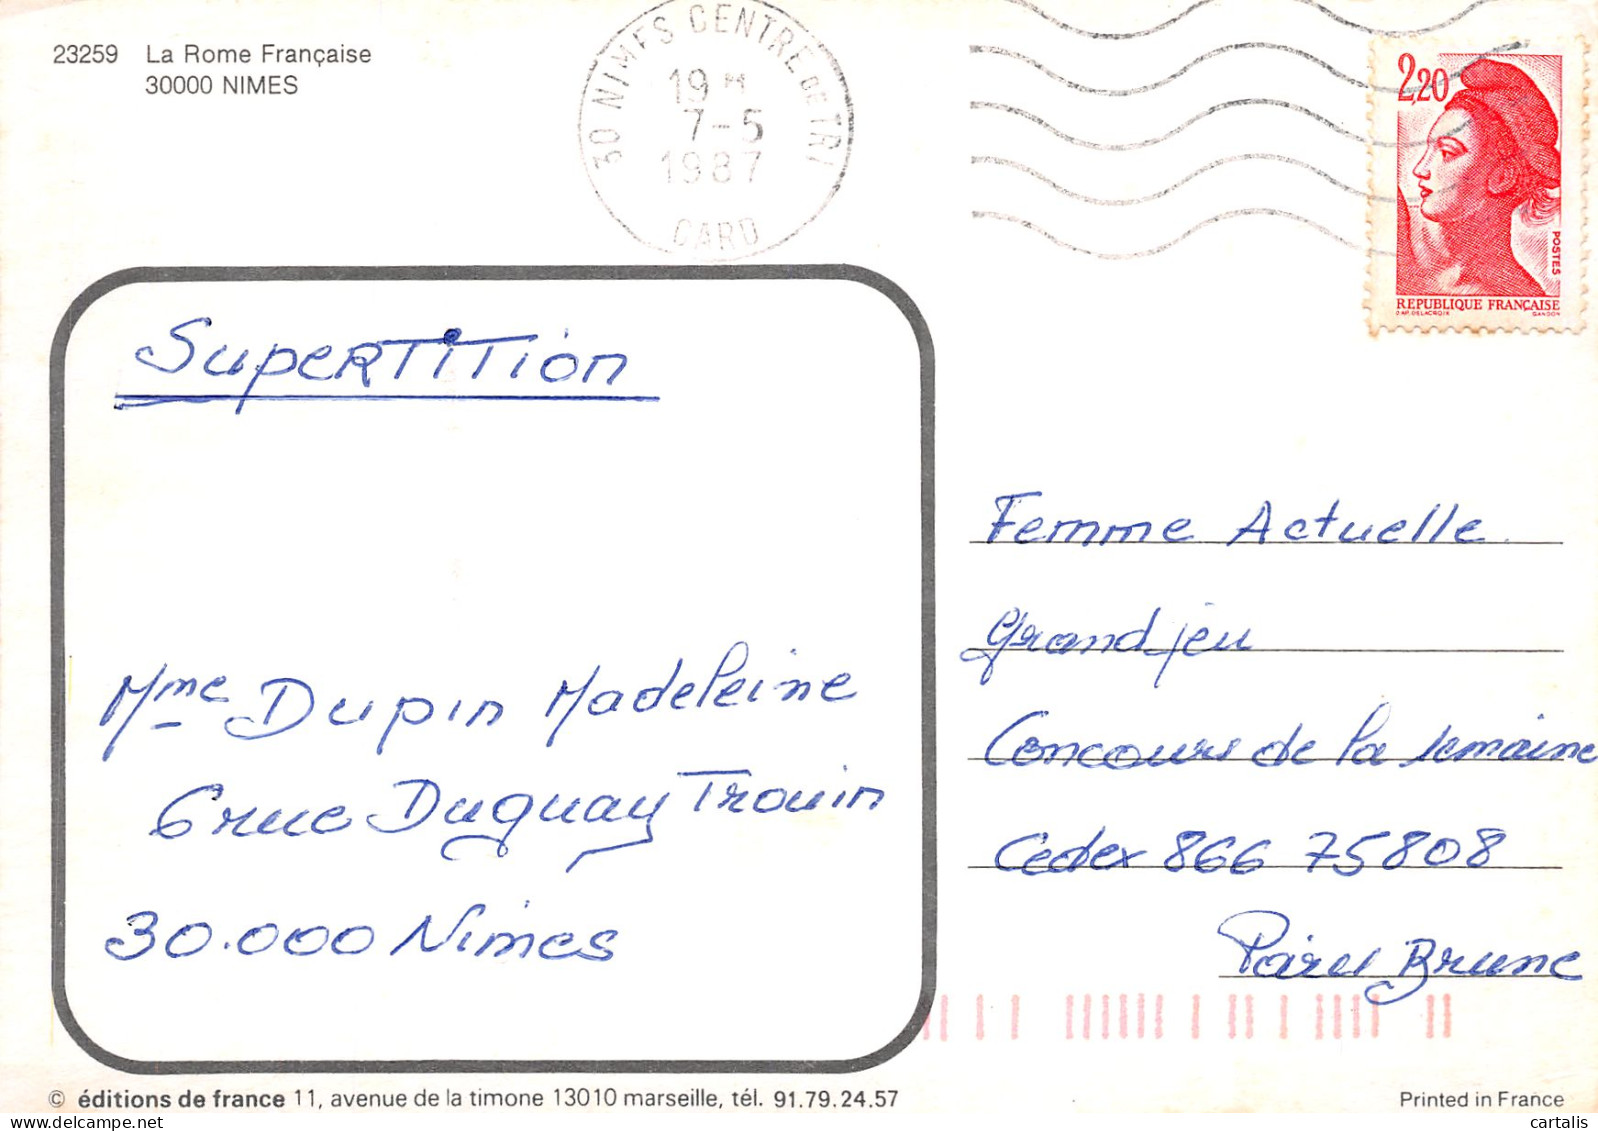 23259 La Rome Française
30000 NIMES
30 NIMES CENTRE DE TRI
19 H
7-5
1987
GARD
2,20
POSTES
REPUBLIQUE FRANÇAISE
D'AP. DELACROIX GANDON
SuperTiTion
Mme Dupin Madeleine
6 rue Duguay Trouin
30.000 Nimes
Femme Actuelle
grand jeu
Concours de la semaine
Cedex 866 75808
Paris Brune
© éditions de france 11, avenue de la timone 13010 marseille, tél. 91.79.24.57
Printed in France
cartalis